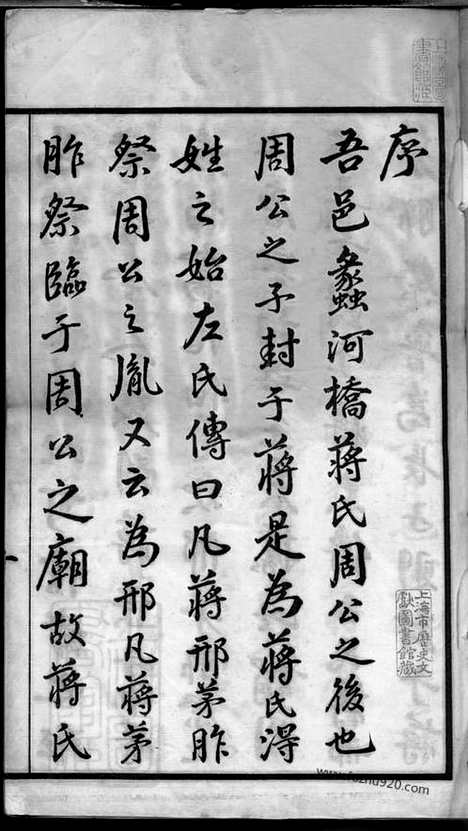 序
吾邑蠡河橋蔣氏周公之後也
周公之子封于蔣是為蔣氏得
姓之始左氏傳曰凡蔣邢茅胙
祭周公之胤又云為邢凡蔣茅
胙祭臨于周公之廟故蔣氏
上海市歷史文
獻圖書館藏